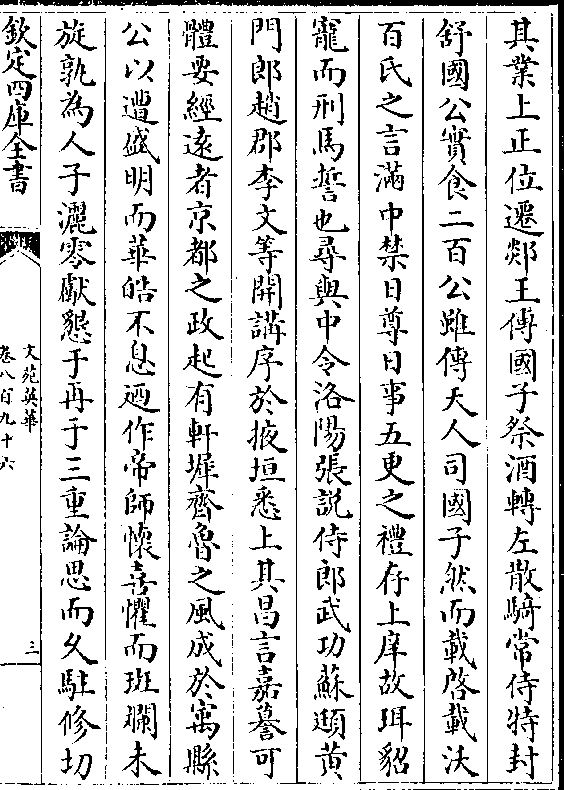 其業上正位遷郯王傅國子祭酒轉左散騎常侍特封
舒國公實食二百公雖傅天人司國子然而載啓載沃
百氏之言滿中禁日尊日事五更之禮存上庠故珥貂
寵而刑馬誓也尋與中令洛陽張説侍郎武功蘇頲黄
門郎趙郡李文等開講序於掖垣悉上其昌言嘉謩可
體要經逺者京都之政起有軒墀齊魯之風成於寓縣
公以遭盛明而華皓不息廼作帝師懐喜懼而班斕未
旋孰為人子灑零獻懇于再于三重論思而乆駐修切
欽定四庫全書
文苑英華
卷八百九十六
三